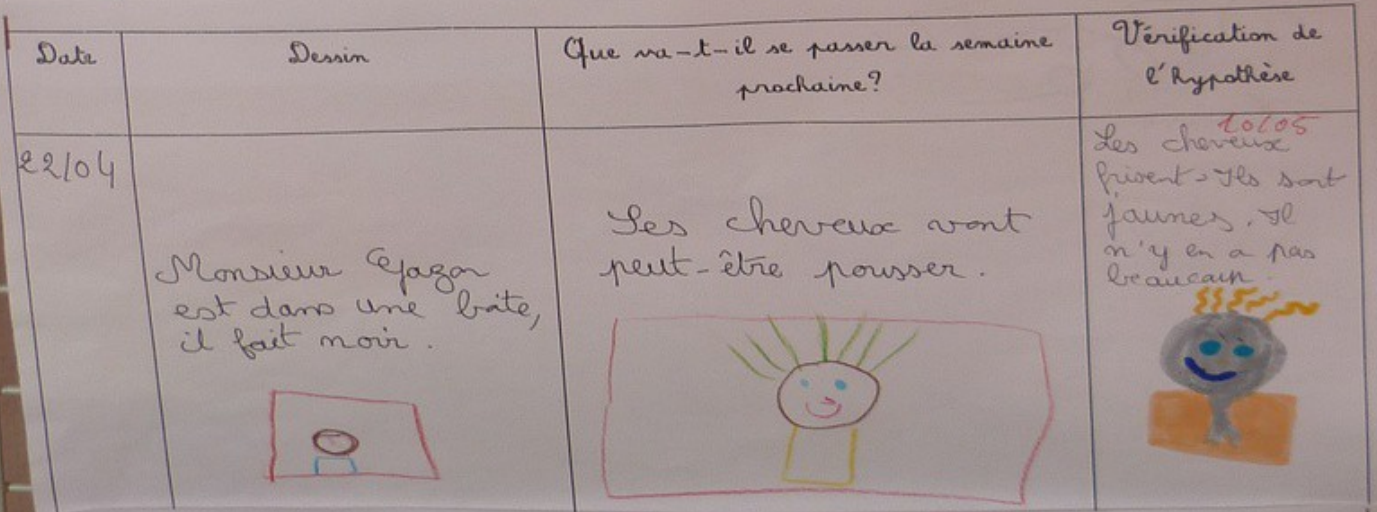 Date
Dessin
Que va-t-il se passer la semaine
prochaine?
Vérification de
l'hypothèse
22/04
Monsieur Gazon
est dans une boîte,
il fait noir.
Les cheveux vont
peut-être pousser.
10/05
Les cheveux
frisent. Ils sont
jaunes. Il
n'y en a pas
beaucoup.